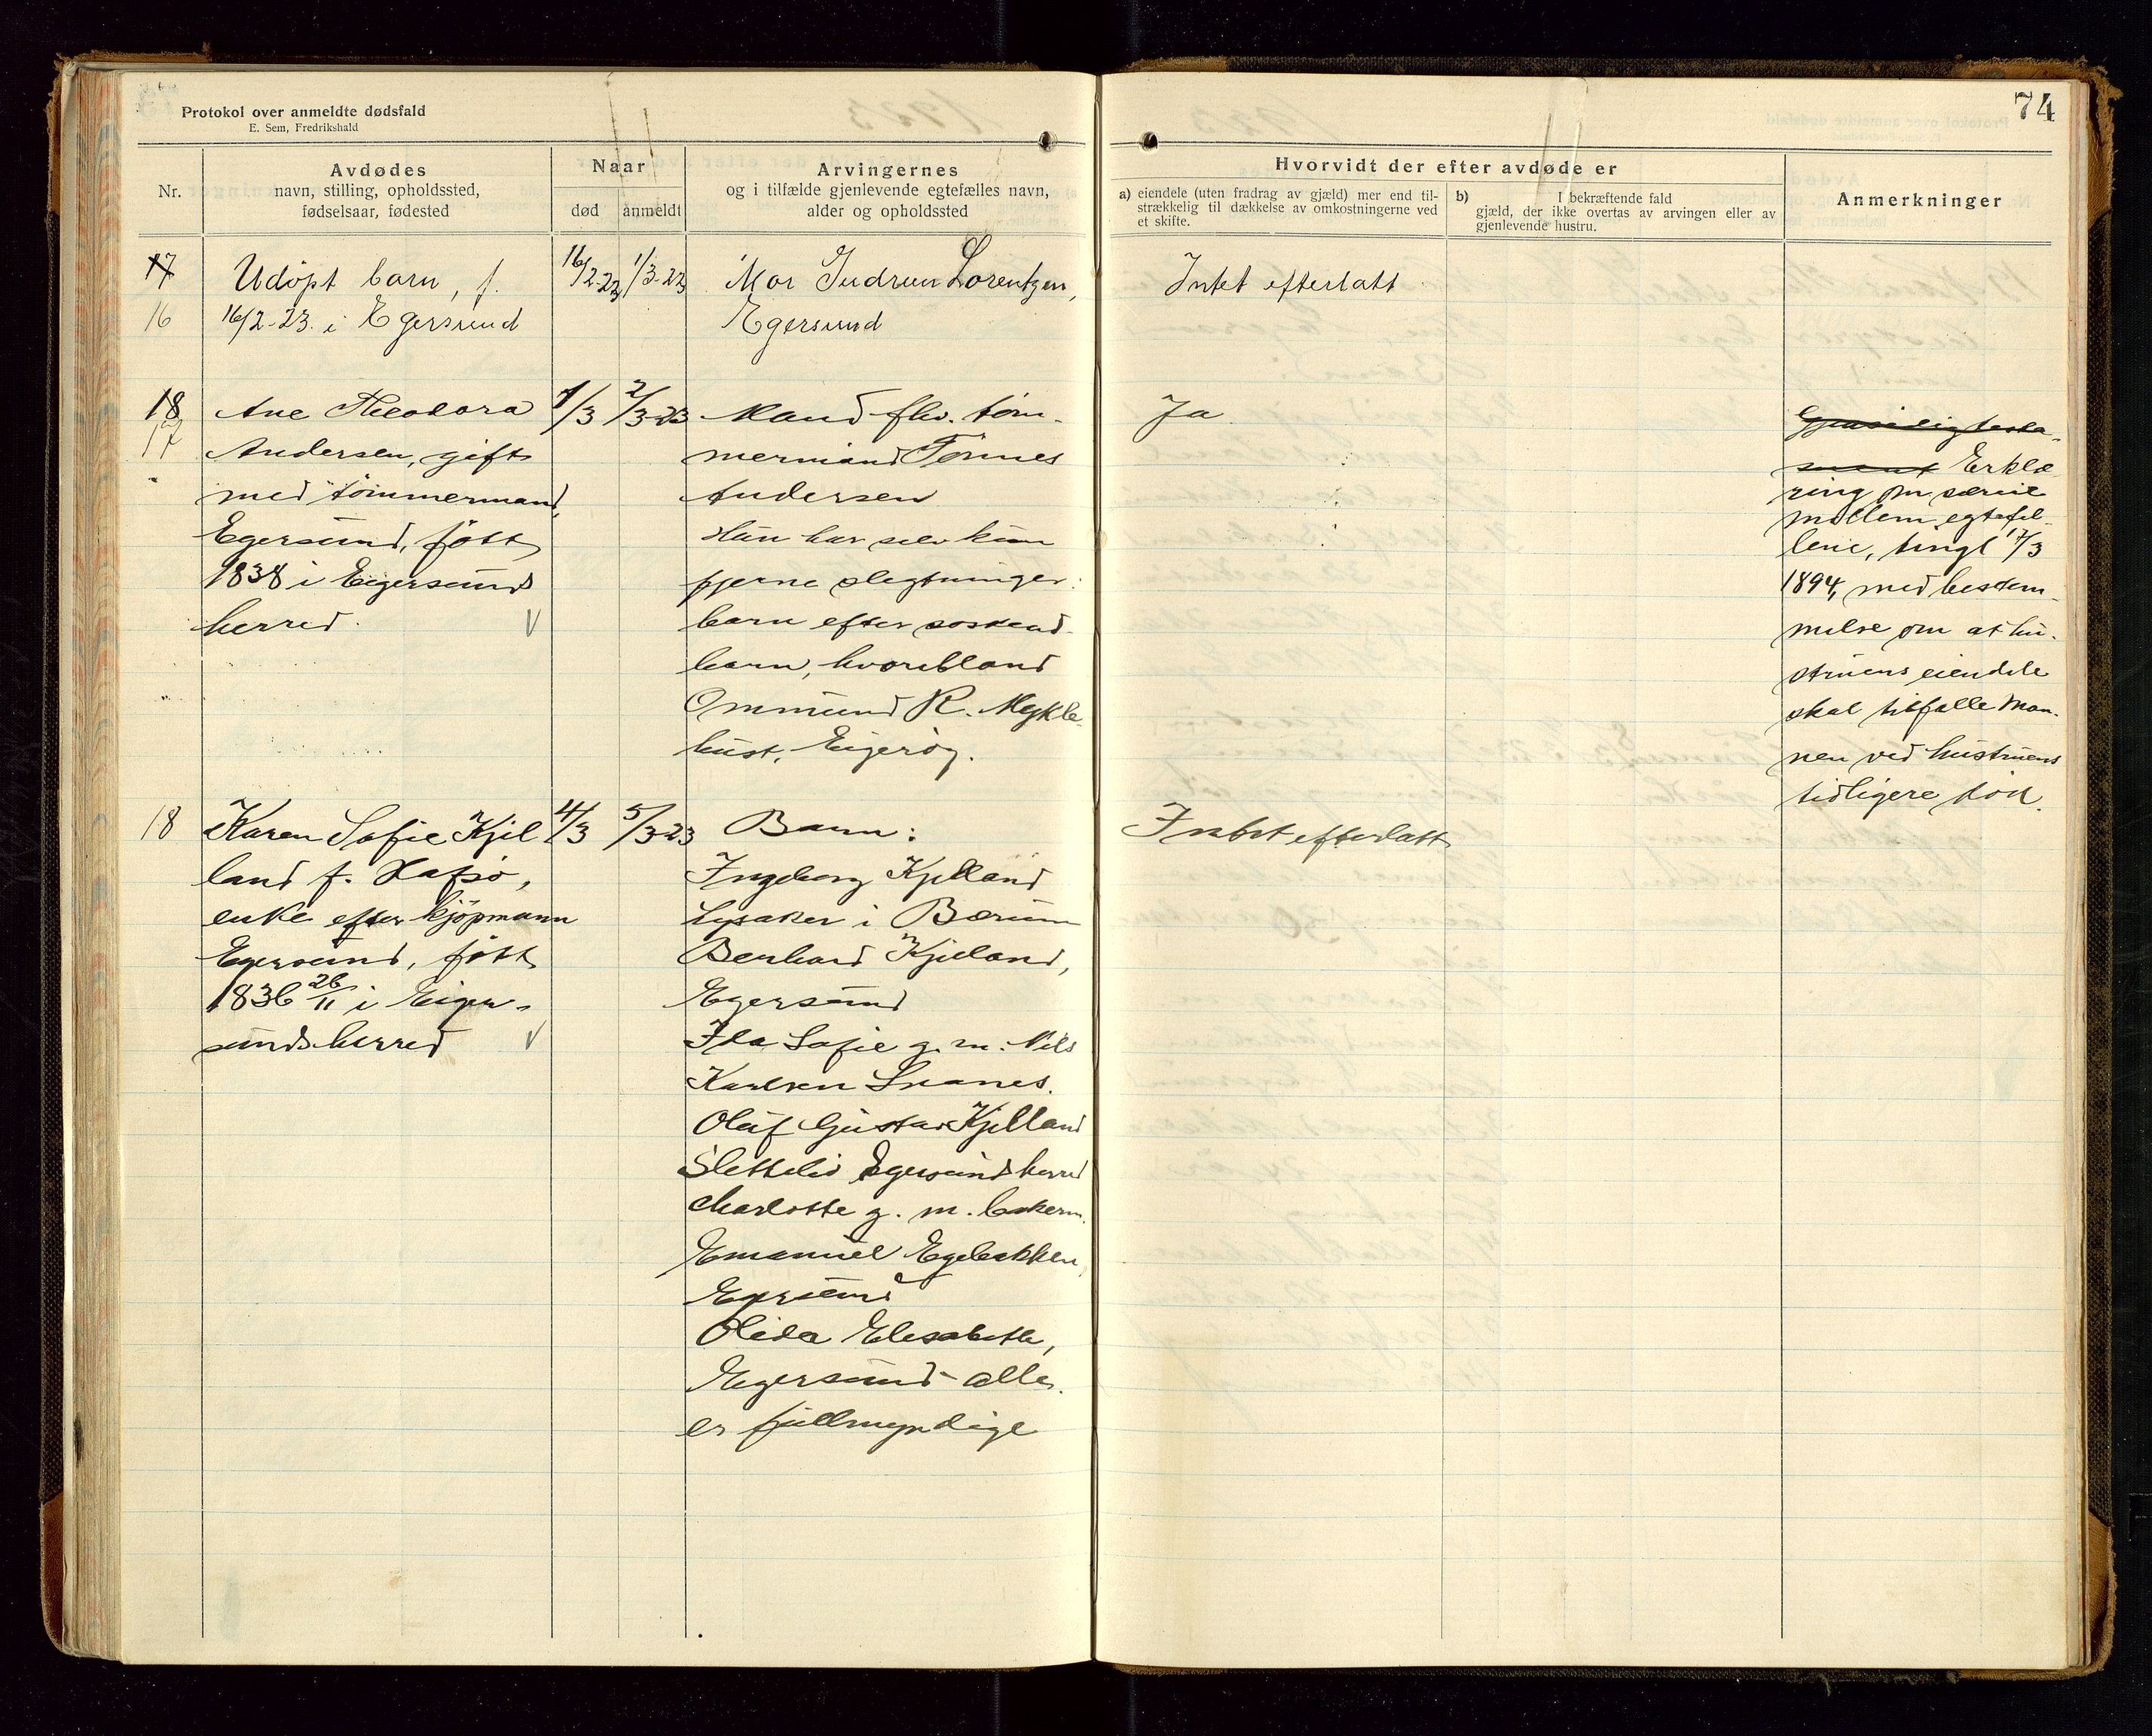 74
Protokol over anmeldte dødsfald
E. Sem, Fredrikshald
Nr.
Avdødes
navn, stilling, opholdssted,
fødselsaar, fødested
Naar
død
anmeldt
Arvingernes
og i tilfælde gjenlevende egtefælles navn,
alder og opholdssted
Hvorvidt der efter avdøde er
a) eiendele (uten fradrag av gjæld) mer end til-
strækkelig til dækkelse av omkostningerne ved
et skifte.
b) I bekræftende fald
gjæld, der ikke overtas av arvingen eller av
gjenlevende hustru.
Anmerkninger
17
16
Udöpt barn, f.
16/2-23. i Egersund
16/2-23
1/3-23
Mor Gudrun Lorentzen,
Egersund
Intet efterlatt
18
17
Ane Theodora
Andersen, gift
med tömmermand,
Egersund, född
1838 i Eigersunds
herred.
1/3
2/3-23
Mand fhv. töm-
mermand Tönnes
Andersen
Hun har selv kun
fjerne slegtninger:
barn efter søskend-
barn, hvoribland
Ommund R. Mykle-
bust, Eigeröy.
Ja
Gjensidig testa-
ment Erklæ
ring om særeie
mellem egtefel-
lene, tingl 17/3
1894, med bestem-
melse om at hu-
struens eiendele
skal tilfalle man-
nen ved hustruens
tidligere död.
18
Karen Sofie Kjel
land f. Hafsö,
enke efter kjöpmann
Egersund, född
1836 26/11 i Eiger-
sunds herred
4/3
5/3-23
Barn:
Ingeborg Kjelland
Lysaker i Bærum
Berhard Kjelland,
Egersund
Ida Sofie g. m. Nils
Karlsen Svanes.
Oluf Gustav Kjelland
Slettelid Egersunds herred
Charlotte g. m. bakerm.
Emanuel Egebakken,
Egersund
Olida Elisabeth,
Egersund - alle
er fullmyndige
Intet efterlatt